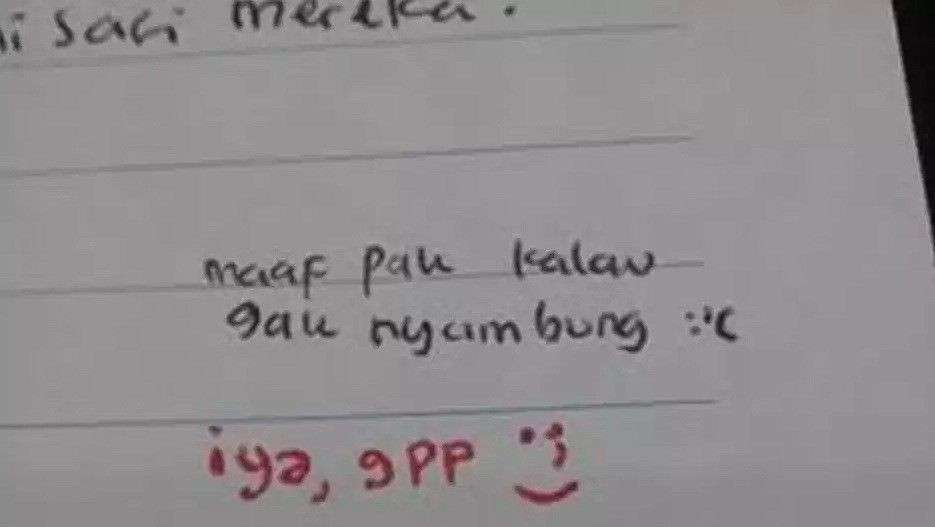 i saci mereka.
maaf pak kalau
gak nyambung :'(
iya, gpp :)